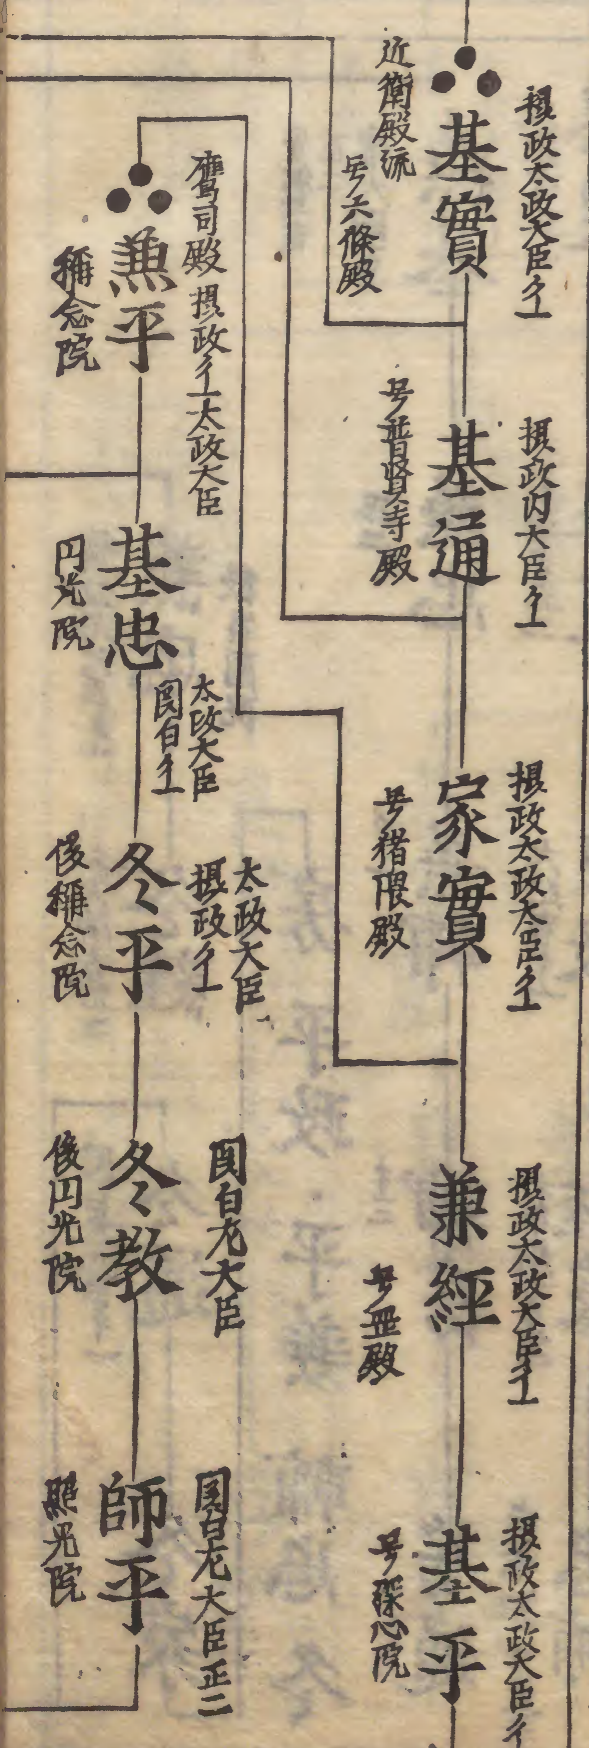 摂政太政大臣従一
基實
近衛殿流
号六條殿
摂政内大臣従一
基通
号普賢寺殿
摂政太政大臣従一
家實
号猪隈殿
摂政太政大臣従一
兼經
号
殿
摂政太政大臣従
基平
号深心院
鷹司殿 摂政従一太政大臣
兼平
稱念院
基忠
円光院
太政大臣
関白従一
太政大臣
摂政従一
冬平
後稱念院
関白左大臣
冬教
後円光院
関白左大臣正二
師平
照光院